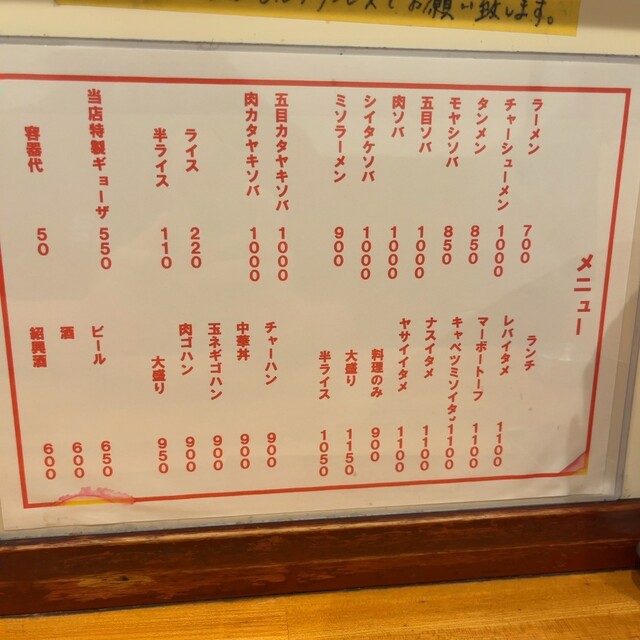 お願い致します。
メニュー
ラーメン 700
チャーシューメン 1000
タンメン 850
モヤシソバ 850
五目ソバ 1000
肉ソバ 1000
シイタケソバ 1000
ミソラーメン 900
五目カタヤキソバ 1000
肉カタヤキソバ 1000
ライス 220
半ライス 110
当店特製ギョーザ 550
容器代 50
ランチ
レバイタメ 1100
マーボートーフ 1100
キャベツミソイタメ 1100
ナスイタメ 1100
ヤサイイタメ 1100
料理のみ 900
大盛り 1150
半ライス 1050
チャーハン 900
中華丼 900
玉ネギゴハン 900
肉ゴハン 900
大盛り 950
ビール 650
酒 600
紹興酒 600